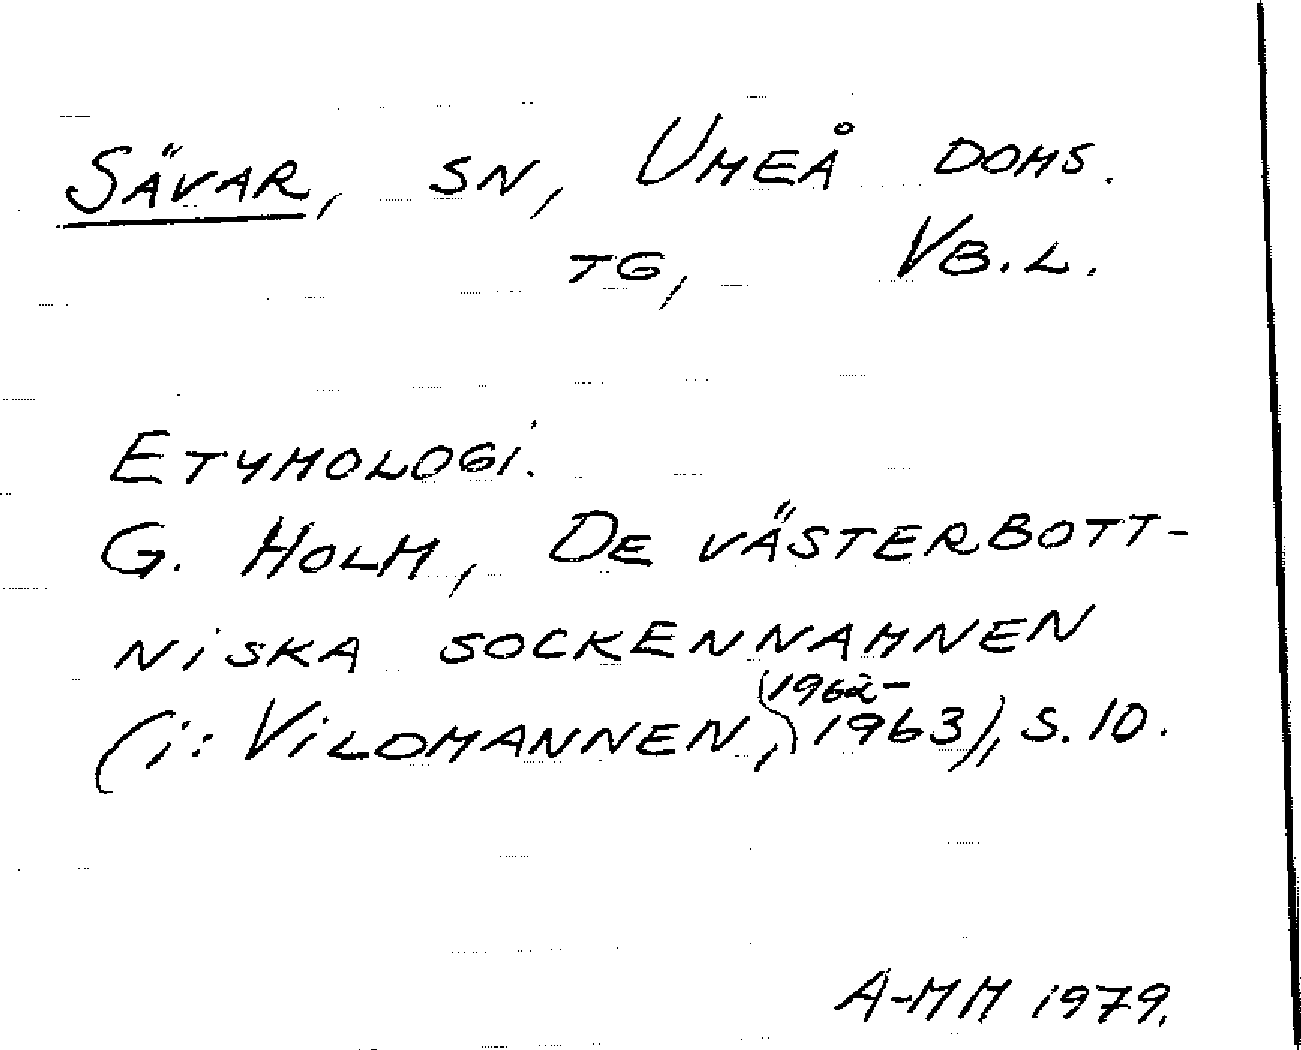 SÄVAR, SN, UMEÅ DOMS.
TG, VB.L.
ETYMOLOGI.
G. HOLM, DE VÄSTERBOTT-
NISKA SOCKENNAMNEN
(i: VILDMANNEN, 1962-1963), S. 10.
A-MM 1979.